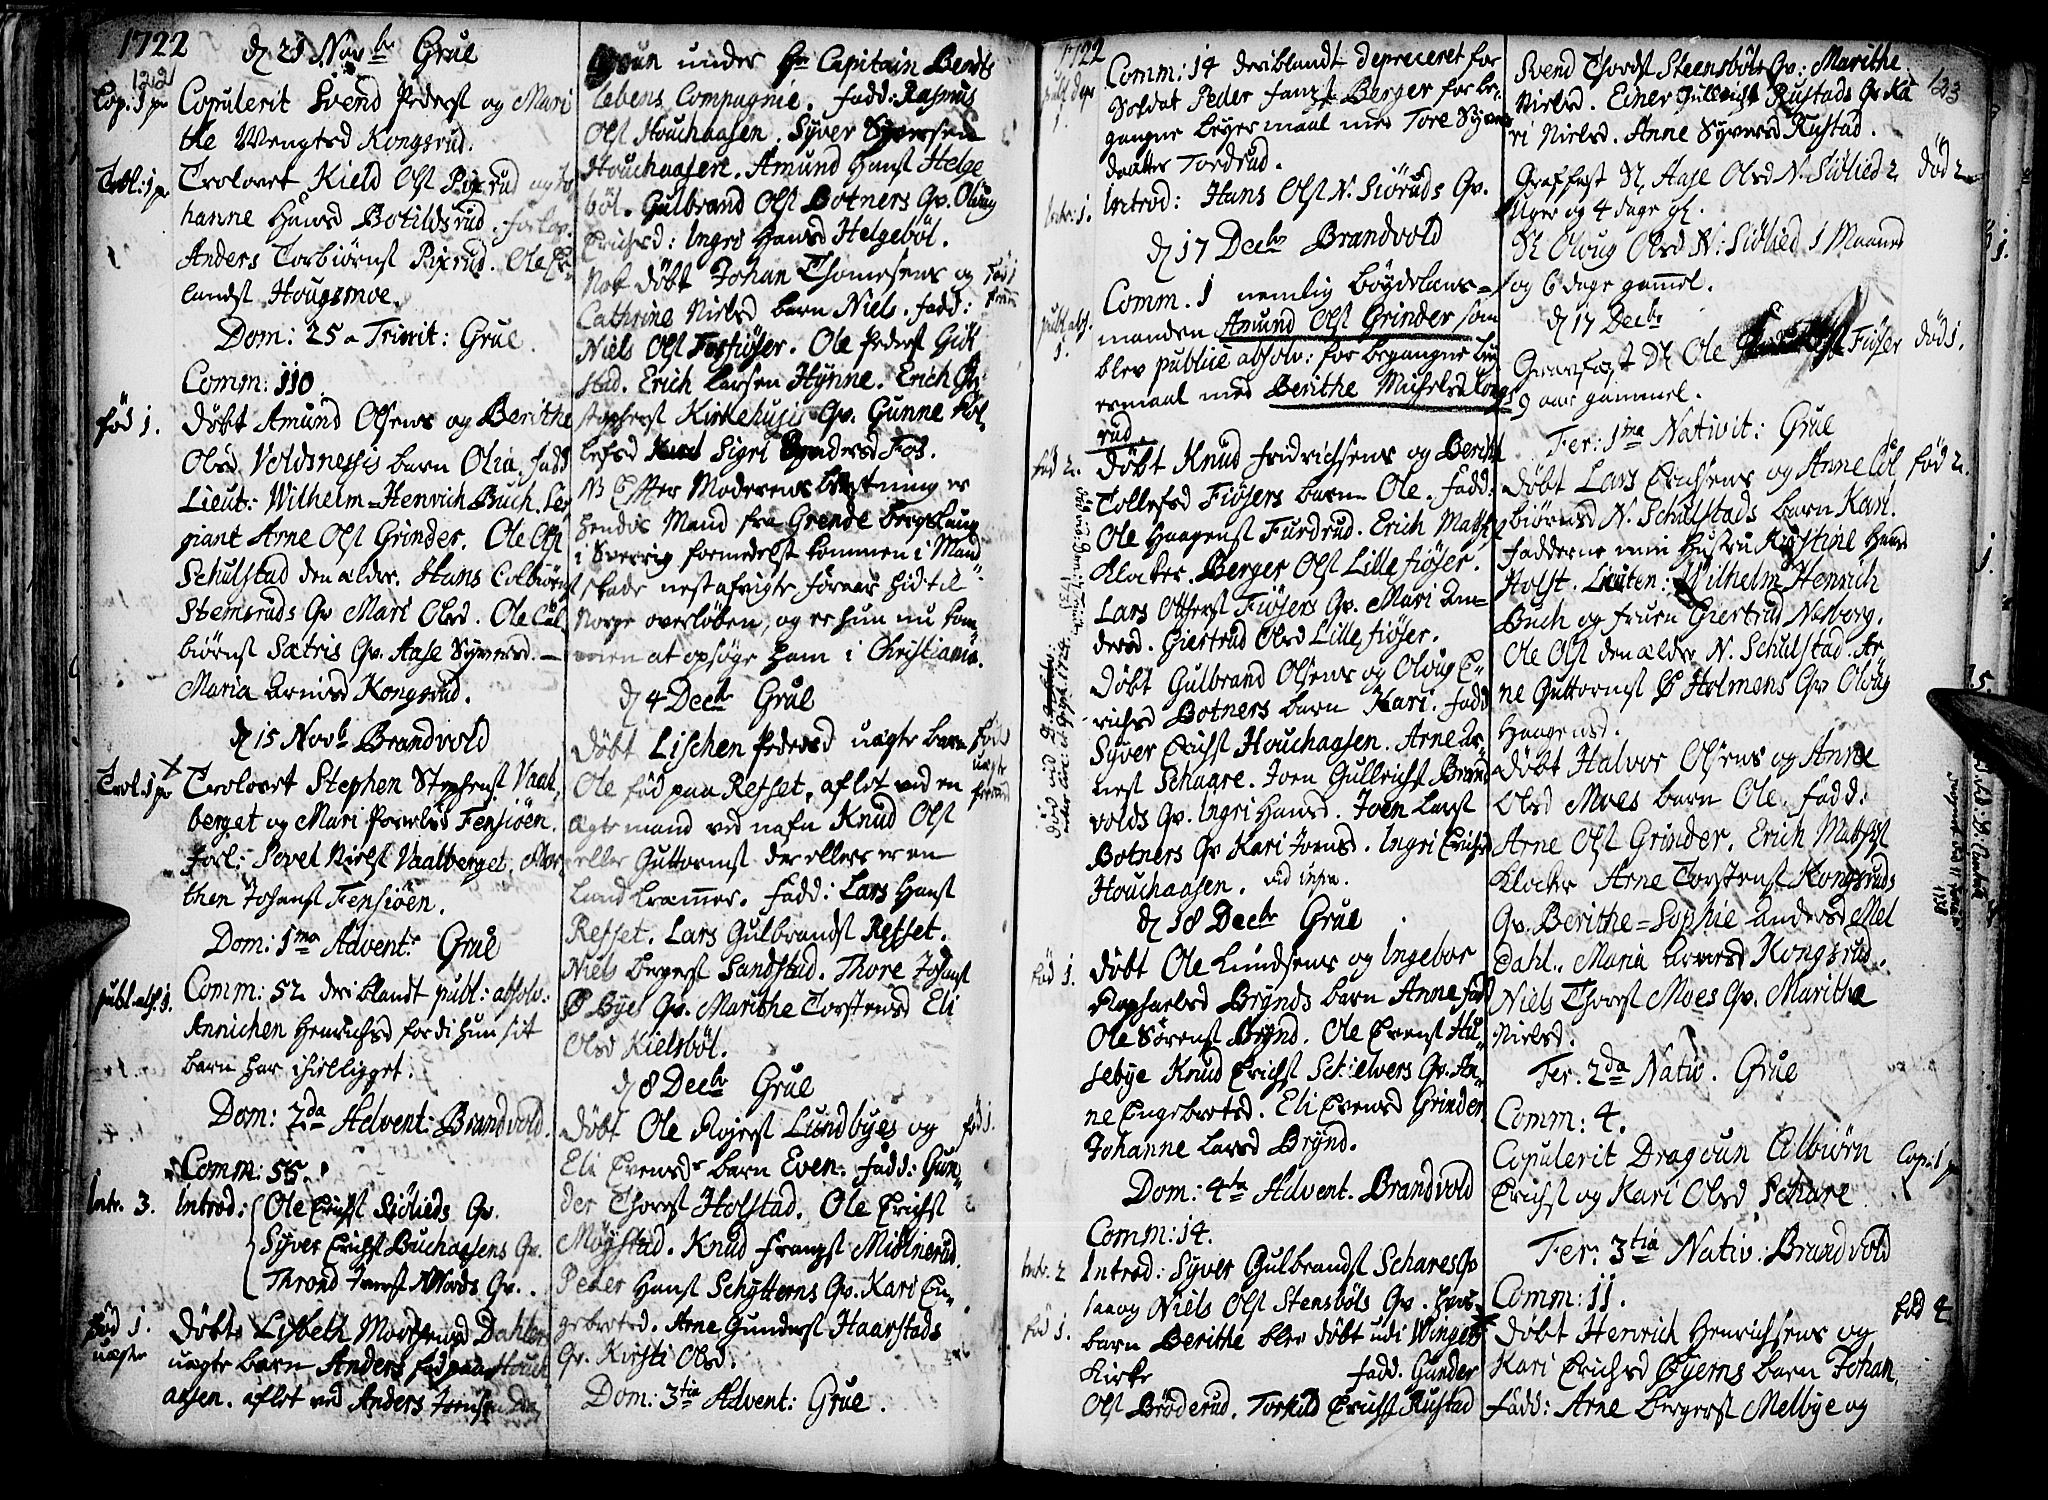 1722
122
d 21 Novbr Grue
Cop: 1 pr
Copulerit Svend Peders. og Mari
the Wengtsd Kongsrud.
Trol: 1 pr
Trolovet Kield Ols. Pixrud og Jo
hanne Hansd Botildsrud. forlov.
Anders Torbiørns. Pixrud. Ole Er
lands. Hougsmoe.
Dom: 25 a Trinit: Grue
Comm: 110.
Død 1.
Døbt Amund Olsens og Berithe
Olsd Voldsnessis barn Olia. fadd
Lieut: Wilhelm-Henrich Buch. Ser
giant Arne Ols. Grinder. Ole Ols.
Schulstad den ælder. Hans Colbiørns.
Stemsruds Qv Mari Olsd. Ole Col
biørns. Sætris Qv. Aase Syversd. —
Maria Arnisd Kongsrud.
d 15 Novb Brandvold
Trol. 1 pr
Trolovet Stephen Stephens. Vaal
berget og Mari Povelsd Fensiøen.
forl: Povel Niels. Vaalberget. Mor
then Johans. Fensiøen.
Dom: 1ma Advent: Grue
publ. abs. 1.
Comm: 52 deriblandt publ: absolv:
Annichen Henrichsd fordi hun sit
barn har ihielligget.
Dom: 2da Advent: Brandvold.
Comm: 55.
Intr. 3.
Introd: Ole Erichs. Siølieds Qv.
Syver Erichs. Buchaasens Qv.
Thrond Joens. Nords Qv.
Fød 1.
uægte
Døbt Lisbeth Morthensd Dahlen
uægte barn Anders fød paa Houch
aasen. aflet ved Anders Joensen Dra
goun under Hr Capitain Bendt
Lebens Compagnie. fadd: Rasmus
Ols. Houchaasen. Syver Syversen
Houchaasen. Amund Hans. Helge
bøl. Gulbrand Ols. Botners Qv. Oloug
Erichsd: Ingri Hansd Helgebøl.
Nok døbt Johan Thomesens og
Fød 1
Cathrine Nielsd barn Niels. fadd:
Niels Ols. Fosfiøser. Ole Peders. Gul
stad. Erich Larsen Hynne. Erich Chri
stophers. Kirkehusis Qv. Gunne Tol
lefsd Sigri Gundersd Fos.
NB Efter Moderens beretning er
hendis Mand fra Grende Bergslaug
i Sverrig formedelst kommen i Mand
skade nest afvigte foraar hid til
Norge overløben, og er hun nu kom
men at opsøge ham i Christiania.
d 4 Decbr Grue
Døbt Lischen Pedersd uægte barn
Fød 1
uægte
Ole fød paa Refset, aflet ved en
Ægte mand ved nafn Knud Ols.
eller Guttorms. der ellers er en
Landkræmmer. fadd: Lars Hans.
Refset. Lars Gulbrands. Refset.
Niels Bergers. Sandstad. Thore Johans.
Ø Byes Qv. Marithe Torstensd Eli
Olsd Kielsbøl.
d 8 Decbr Grue
Døbt Ole Rojers. Lundbyes og
Fød 1.
Eli Evensd barn Even. fadd: Gun
der Thors. Holstad. Ole Erichs.
Møystad. Knud Frants. Miølnerud.
Peder Hans. Schytterns Qv. Kari En
gebretsd. Arne Gunders. Haarstads
Qv. Kirsti Olsd.
Dom: 3tia Advent: Grue.
1722
publ depr
1.
Comm: 14 deriblandt depreceret for
Soldat Peder Frants. Berger for be
gangne leyermaal med Tore Syvers
daatter Tordrud.
Intr: 1.
Introd: Hans Ols. N. Siøruds Qv.
d 17 Decbr Brandvold
publ abs.
1.
Comm. 1 nemlig bøydelens
manden Amund Ols. Grinder som
blev publice absolv: for begangne ley
ermaal med Berithe Michelsd Kongs
rud.
Fød 2.
Døbt Knud Fridrichsens og Berithe
Tollefsd Fiøsers barn Ole. fadd.
Ole Haagens. Furdrud. Erich Matthis.
Klocker. Berger Ols. Lille fiøser.
Lars Otthers. Fiøsers Qv. Mari An
dersd. Giertrud Olsd Lille fiøser.
Døbt Gulbrand Olsens og Oloug E
richsd Botners barn Kari. fadd
Syver Erichs. Houchaasen. Arne Ar
nes. Schaare. Joen Gullichs. Brand
volds Qv. Ingri Hansd. Joen Lars.
Botners Qv Kari Joensd. Ingri Erichsd
Houchaasen. vid infra.
d 18 Decbr Grue
Fød 1.
Døbt Ole Lundsens og Ingebor
Raphaelsd Brynds barn Anne fadd
Ole Sørens. Brynd. Ole Evens. Hu
sebye Knud Erichs. Schielvers Qv. An
ne Engebretsd. Eli Evensd Grinder
Johanne Larsd Brynd.
Dom: 4ta Advent. Brandvold
Comm: 14.
Intr. 2
Introd: Syver Gulbrands. Schares Qv
saa og Niels Ols. Stensbøls Qv. hvis
Fød 1.
barn Berithe blev døbt udi Winger
Kirke fadd. Gunder
Ols. Brøderud. Torkild Erichs. Rustad
123
Svend Thords. Steensbøls Qv: Marithe
Nielsd. Einer Gullichs. Rustads Qv Ka
ri Nielsd. Anne Syversd Rustad.
Graffæst Sl. Aase Olsd N. Siølied 2
Død 2
Uger og 4 dage gl.
Sl. Oloug Olsd N: Siølied 1 Maaned
og 6 dage gammel.
d 17 Decbr
Graffæst Sl. Ole Fiøser
Død 1.
9 aar gammel.
Fer: 1ma Nativit: Grue
Døbt Lars Erichsens og Anne Col
Fød 2.
biørnsd N. Schulstads barn Kari.
Fadderne min Hustru Kirstine Hans
Holst. Lieuten: Wilhelm Henrich
Buch og fruen Giertrud Nosberg.
Ole Ols. den ælder N. Schulstad. Ar
ne Guttorms. Ø Holmens Qv Oloug
Haagensd.
Døbt Halvor Olsens og Anne
Olsd Moes barn Ole. fadd:
Arne Ols. Grinder. Erich Matthis.
Klocker Arne Torstens. Kongsruds
Qv. Berithe-Sophie Andersd Mel
Dahl. Maria Arnesd Kongsrud.
Niels Thors. Moes Qv. Marithe
Nielsd.
Fer. 2da Nativ. Grue
Comm: 4.
Copulerit Dragoun Colbiørn
Cop: 1 pr
Erichs. og Kari Olsd Schare
Fer: 3tia Nativ: Brandvold
Comm: 11.
Fød 4
Døbt Henrich Henrichsens og
Kari Erichsd Øyerns barn Johan.
Fadd: Arne Bergers. Melbye og